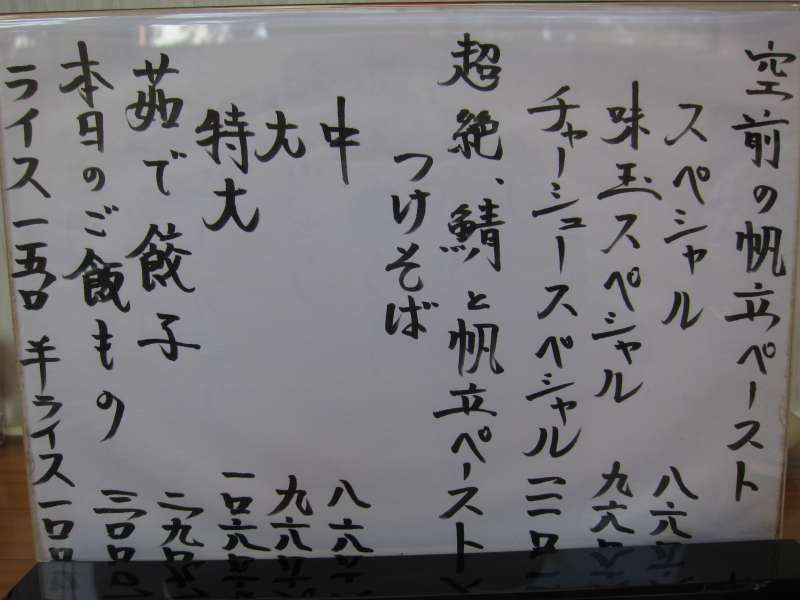 空前の帆立ペースト
スペシャル 八六〇
味玉スペシャル 九六〇
チャーシュースペシャル
超絶、鯖と帆立ペースト
つけそば
中 八六〇
大 九六〇
特大 一〇六〇
茹で餃子 二九〇
本日のご飯もの 三〇〇
ライス一五〇 半ライス一〇〇